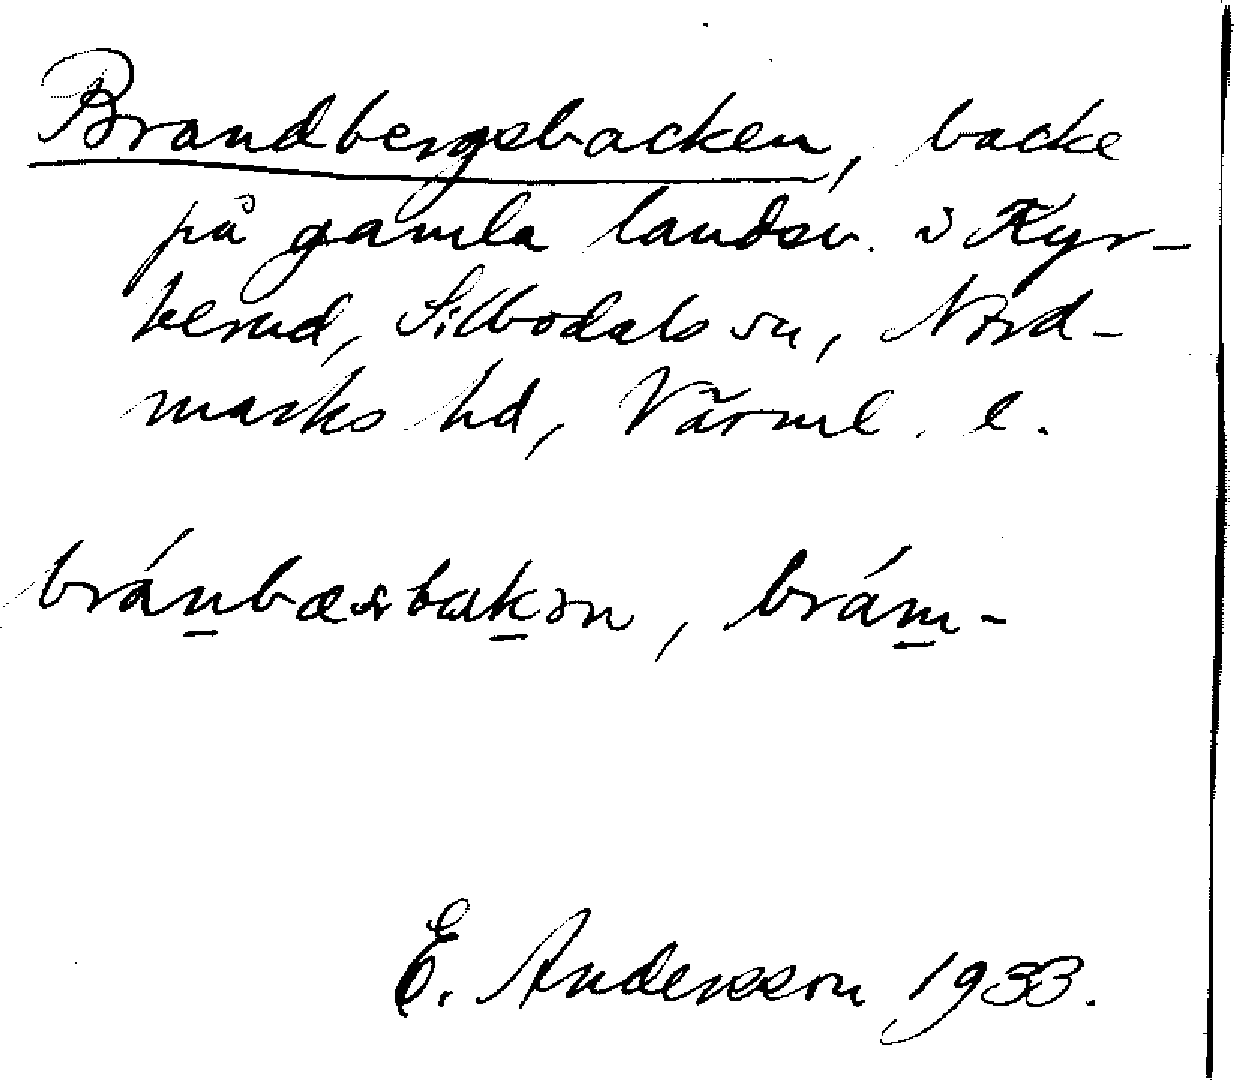 Brandbergsbacken, backe
på gamla landsv. i Kyr-
kerud, Silbodals sn, Nord-
marks hd, Värml. l.
bránbæsbakən, brám-
E. Andersson 1933.